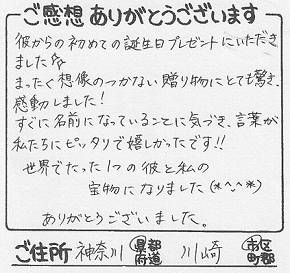 ご感想ありがとうございます
彼からの初めての誕生日プレゼントにいただき
ました☆
まったく想像のつかない贈り物にとても驚き、
感動しました!
すぐに名前になっていることに気づき、言葉が
私たちにピッタリで嬉しかったです!!
世界でたった1つの彼と私の
宝物になりました(*^-^*)
ありがとうございました。
ご住所 神奈川 都道府県 川崎 市区町郡